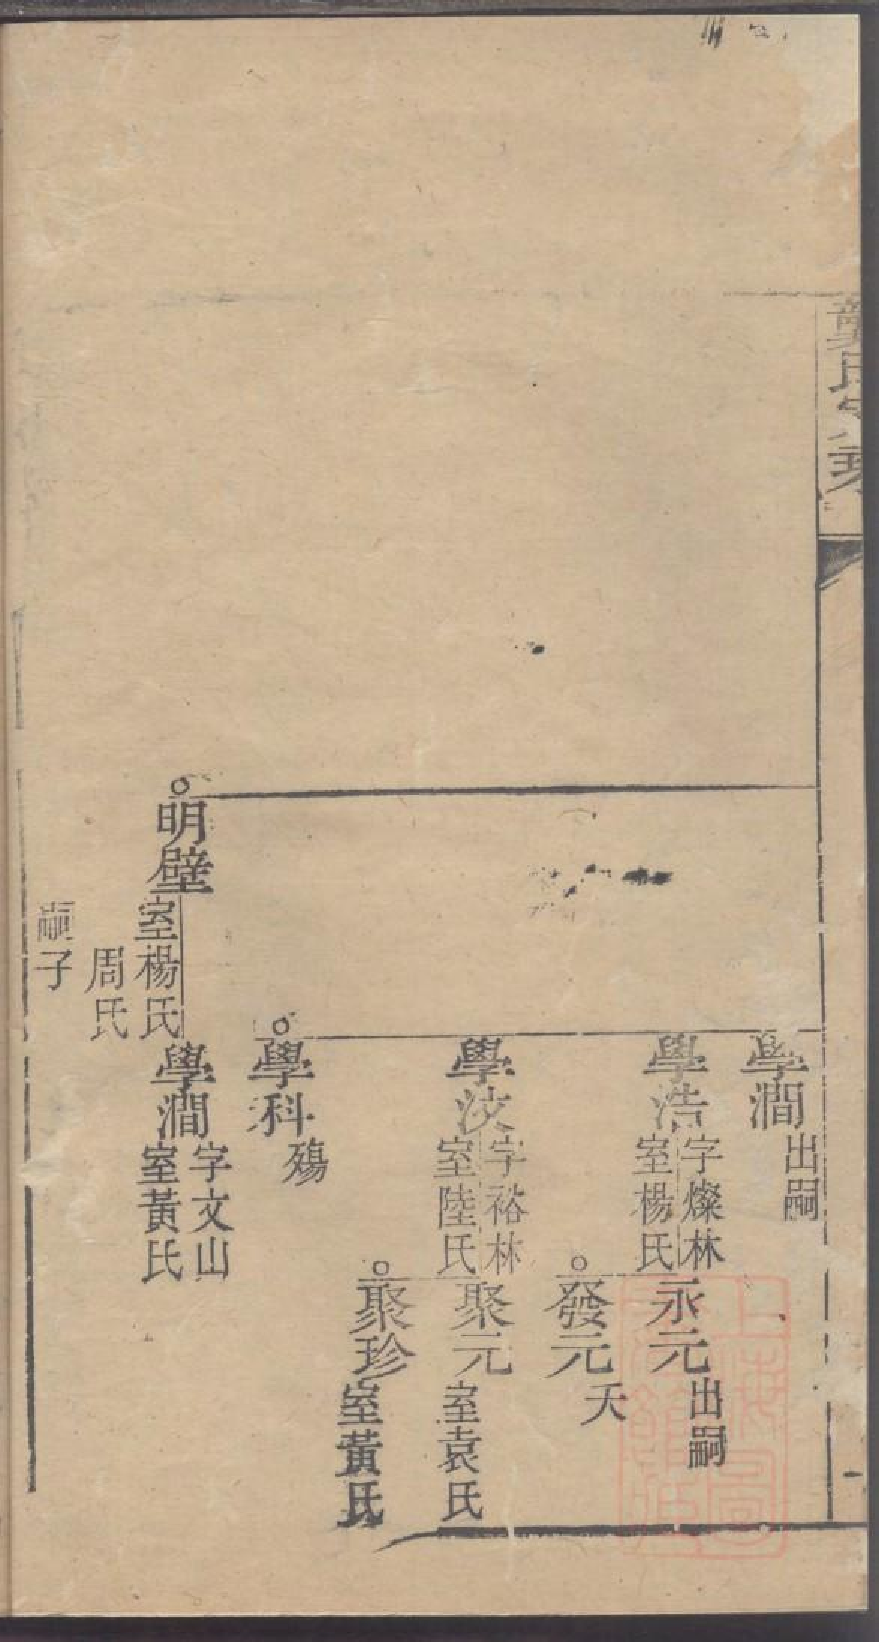 龔氏家乘
學澗 出嗣
學浩 字燦林
室楊氏
永元 出嗣
發元 夭
學汶 字裕林
室陸氏
聚元 室袁氏
聚珍 室黃氏
學科 殤
明壁 室楊氏
周氏
嗣子
學澗 字文山
室黃氏